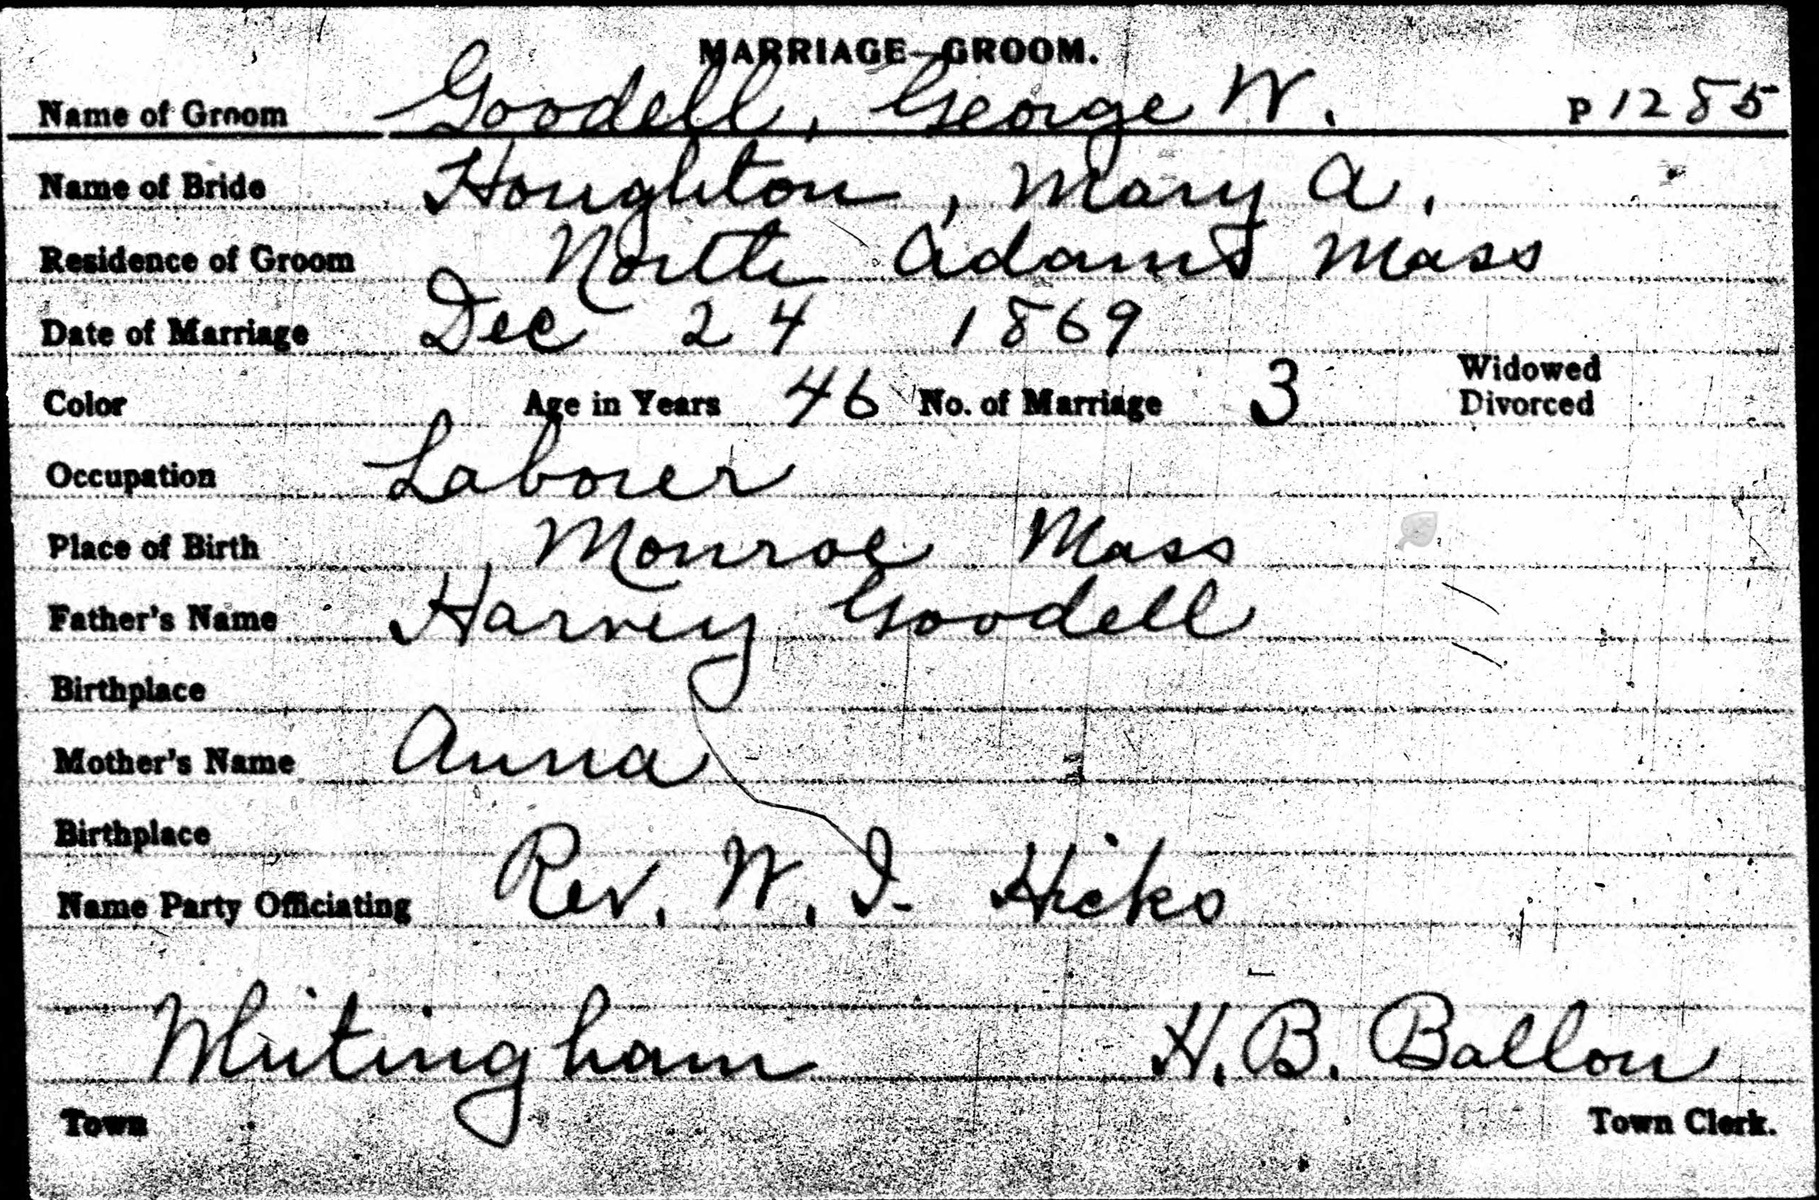 MARRIAGE—GROOM.
Name of Groom Goodell, George W. P 1285
Name of Bride Houghton, Mary A.
Residence of Groom North Adams Mass
Date of Marriage Dec 24 1869
Color Age in Years 46 No. of Marriage 3 Widowed Divorced
Occupation Laborer
Place of Birth Monroe Mass
Father's Name Harvey Goodell
Birthplace
Mother's Name Anna
Birthplace
Name Party Officiating Rev. W. I. Hicks
Whitingham H. B. Ballou
Town Town Clerk.